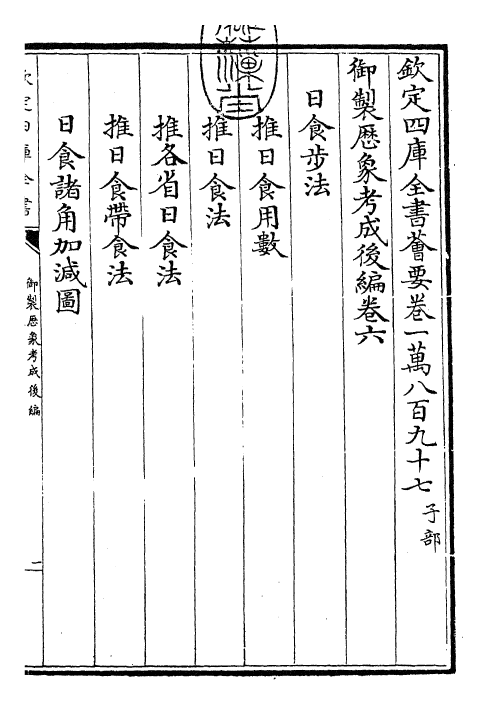 欽定四庫全書薈要卷一萬八百九十七 子部
御製歷象考成後編卷六
日食步法
推日食用數
推日食法
推各省日食法
推日食帶食法
日食諸角加減圖
欽定四庫全書
御製歷象考成後編
二